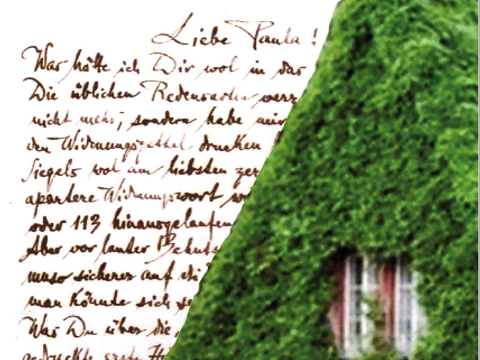 Liebe Paula!
Was hätte ich Dir wol in das
Die üblichen Redensarten verz
nicht mehr, sondern habe mir
den Widmungszettel drucken
Siegels wol am liebsten zer
apartere Widmungswort
oder 113 hinausgelaufen
Aber vor lauter Behuts
muss sicherer auf
man könnte sich
Was Du über die
gedruckte erste